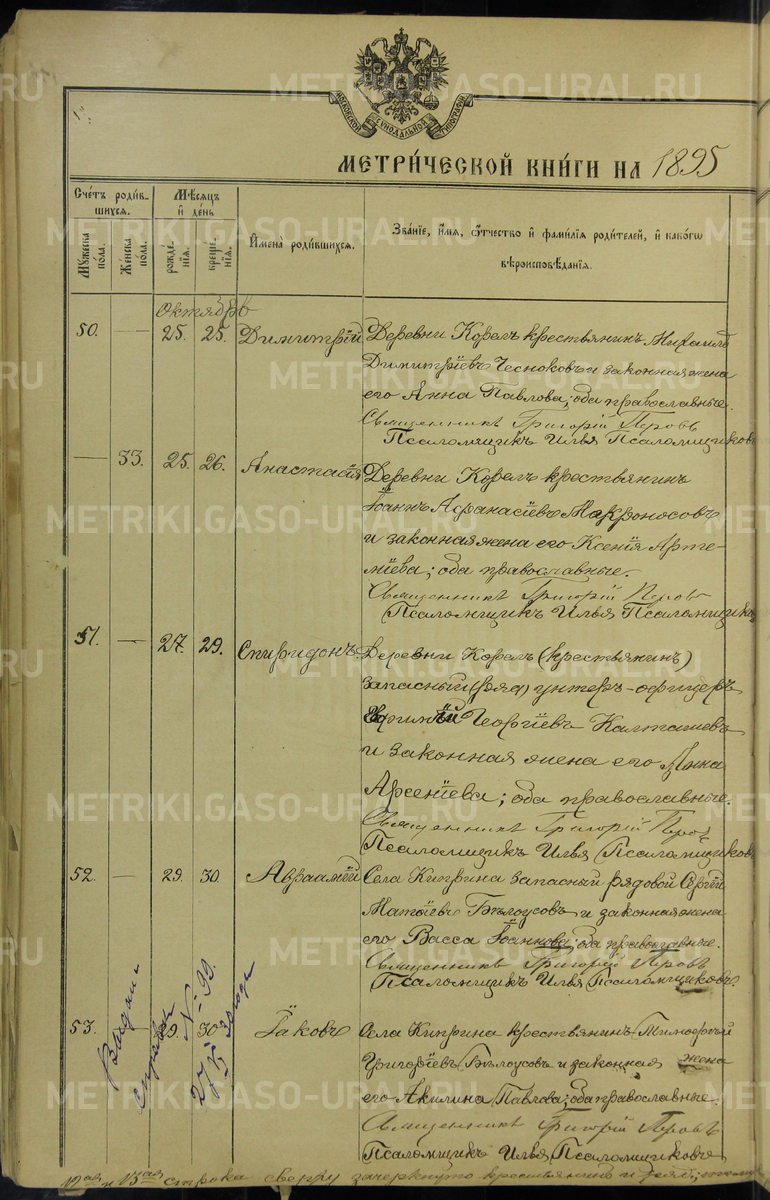 МОСКОВСКОЙ СѴНОДАЛЬНОЙ ТИПОГРАФІИ
МЕТРИ́ЧЕСКОЙ КНИ́ГИ НА 1895
Сче́тъ роди́в-
шихся.
Мѣ́сяцъ
и҆ де́нь
Му́жеска по́ла.
Же́нска по́ла.
рожде́нїѧ.
креще́нїѧ.
И҆мена̀ роди́вшихся.
Зва́нїе, и҆́мя, ѻ҆́тчество и҆ фами́лїѧ роди́телей, и҆ како́гѡ
вѣроисповѣ́данїѧ.
Октябрь
50. — 25. 25. Димитрій Деревни Корелъ крестьянинъ Михаилъ
Димитріевъ Чесноковъ и законная жена
его Анна Павлова; оба православные.
Священникъ Григорій Перовъ
Псаломщикъ Илья Псаломщиковъ
— 33. 25. 26. Анастасія Деревни Корелъ крестьянинъ
Іоаннъ Аѳанасіевъ Макроносовъ
и законная жена его Ксенія Арте-
міева; оба православные.
Священникъ Григорій Перовъ
Псаломщикъ Илья Псаломщиковъ
51. — 27. 29. Спиридонъ Деревни Корелъ (крестьянинъ)
запасный (ряд) унтеръ-офицеръ
Георгіевъ Калташевъ
и законная жена его Анна
Арсеніева; оба православные.
Священникъ Григорій Перовъ
Псаломщикъ Илья Псаломщиковъ
52. — 29. 30. Авраамій Села Киприна запасный рядовой Сергій
Матѳіевъ Бѣлоусовъ и законная жена
его Васса Іоаннова; оба православные.
Священникъ Григорій Перовъ
Псаломщикъ Илья Псаломщиковъ.
53. 29. 30. Іаковъ Села Киприна крестьянинъ Тимоѳей
Григоріевъ Бѣлоусовъ и законная жена
его Акилина Павлова; оба православные.
Священникъ Григорій Перовъ
Псаломщикъ Илья Псаломщиковъ
№ 99.
12ая и 13ая строка сверху зачеркнуто крестьянинъ и ряд;
METRIKI.GASO-URAL.RU